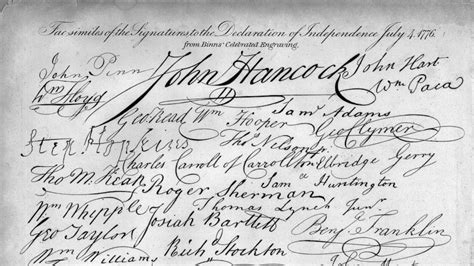 Facsimiles of the Signatures to the Declaration of Independence July 4. 1776.
from Binns' Celebrated Engraving.
John Penn John Hancock John Hart
Wm Floyd Wm Paca
Geo Read Wm Hooper Saml Adams
Step. Hopkins Thos Nelson jr Geo Clymer
Charles Carroll of Carrollton Elbridge Gerry
Tho M. Kean Roger Sherman Saml Huntington
Wm Whipple Thomas Lynch Junr
Geo Taylor Josiah Bartlett Benj. Franklin
Wm Williams Richd Stockton